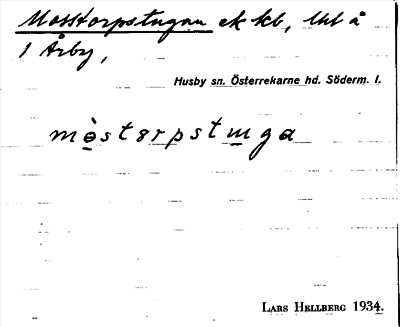 Mosstorpstugan ek kb, lht å
1 Årby,
Husby sn. Österrekarne hd. Söderm. l.
mò̱storpstu̱ga
LARS HELLBERG 1934.